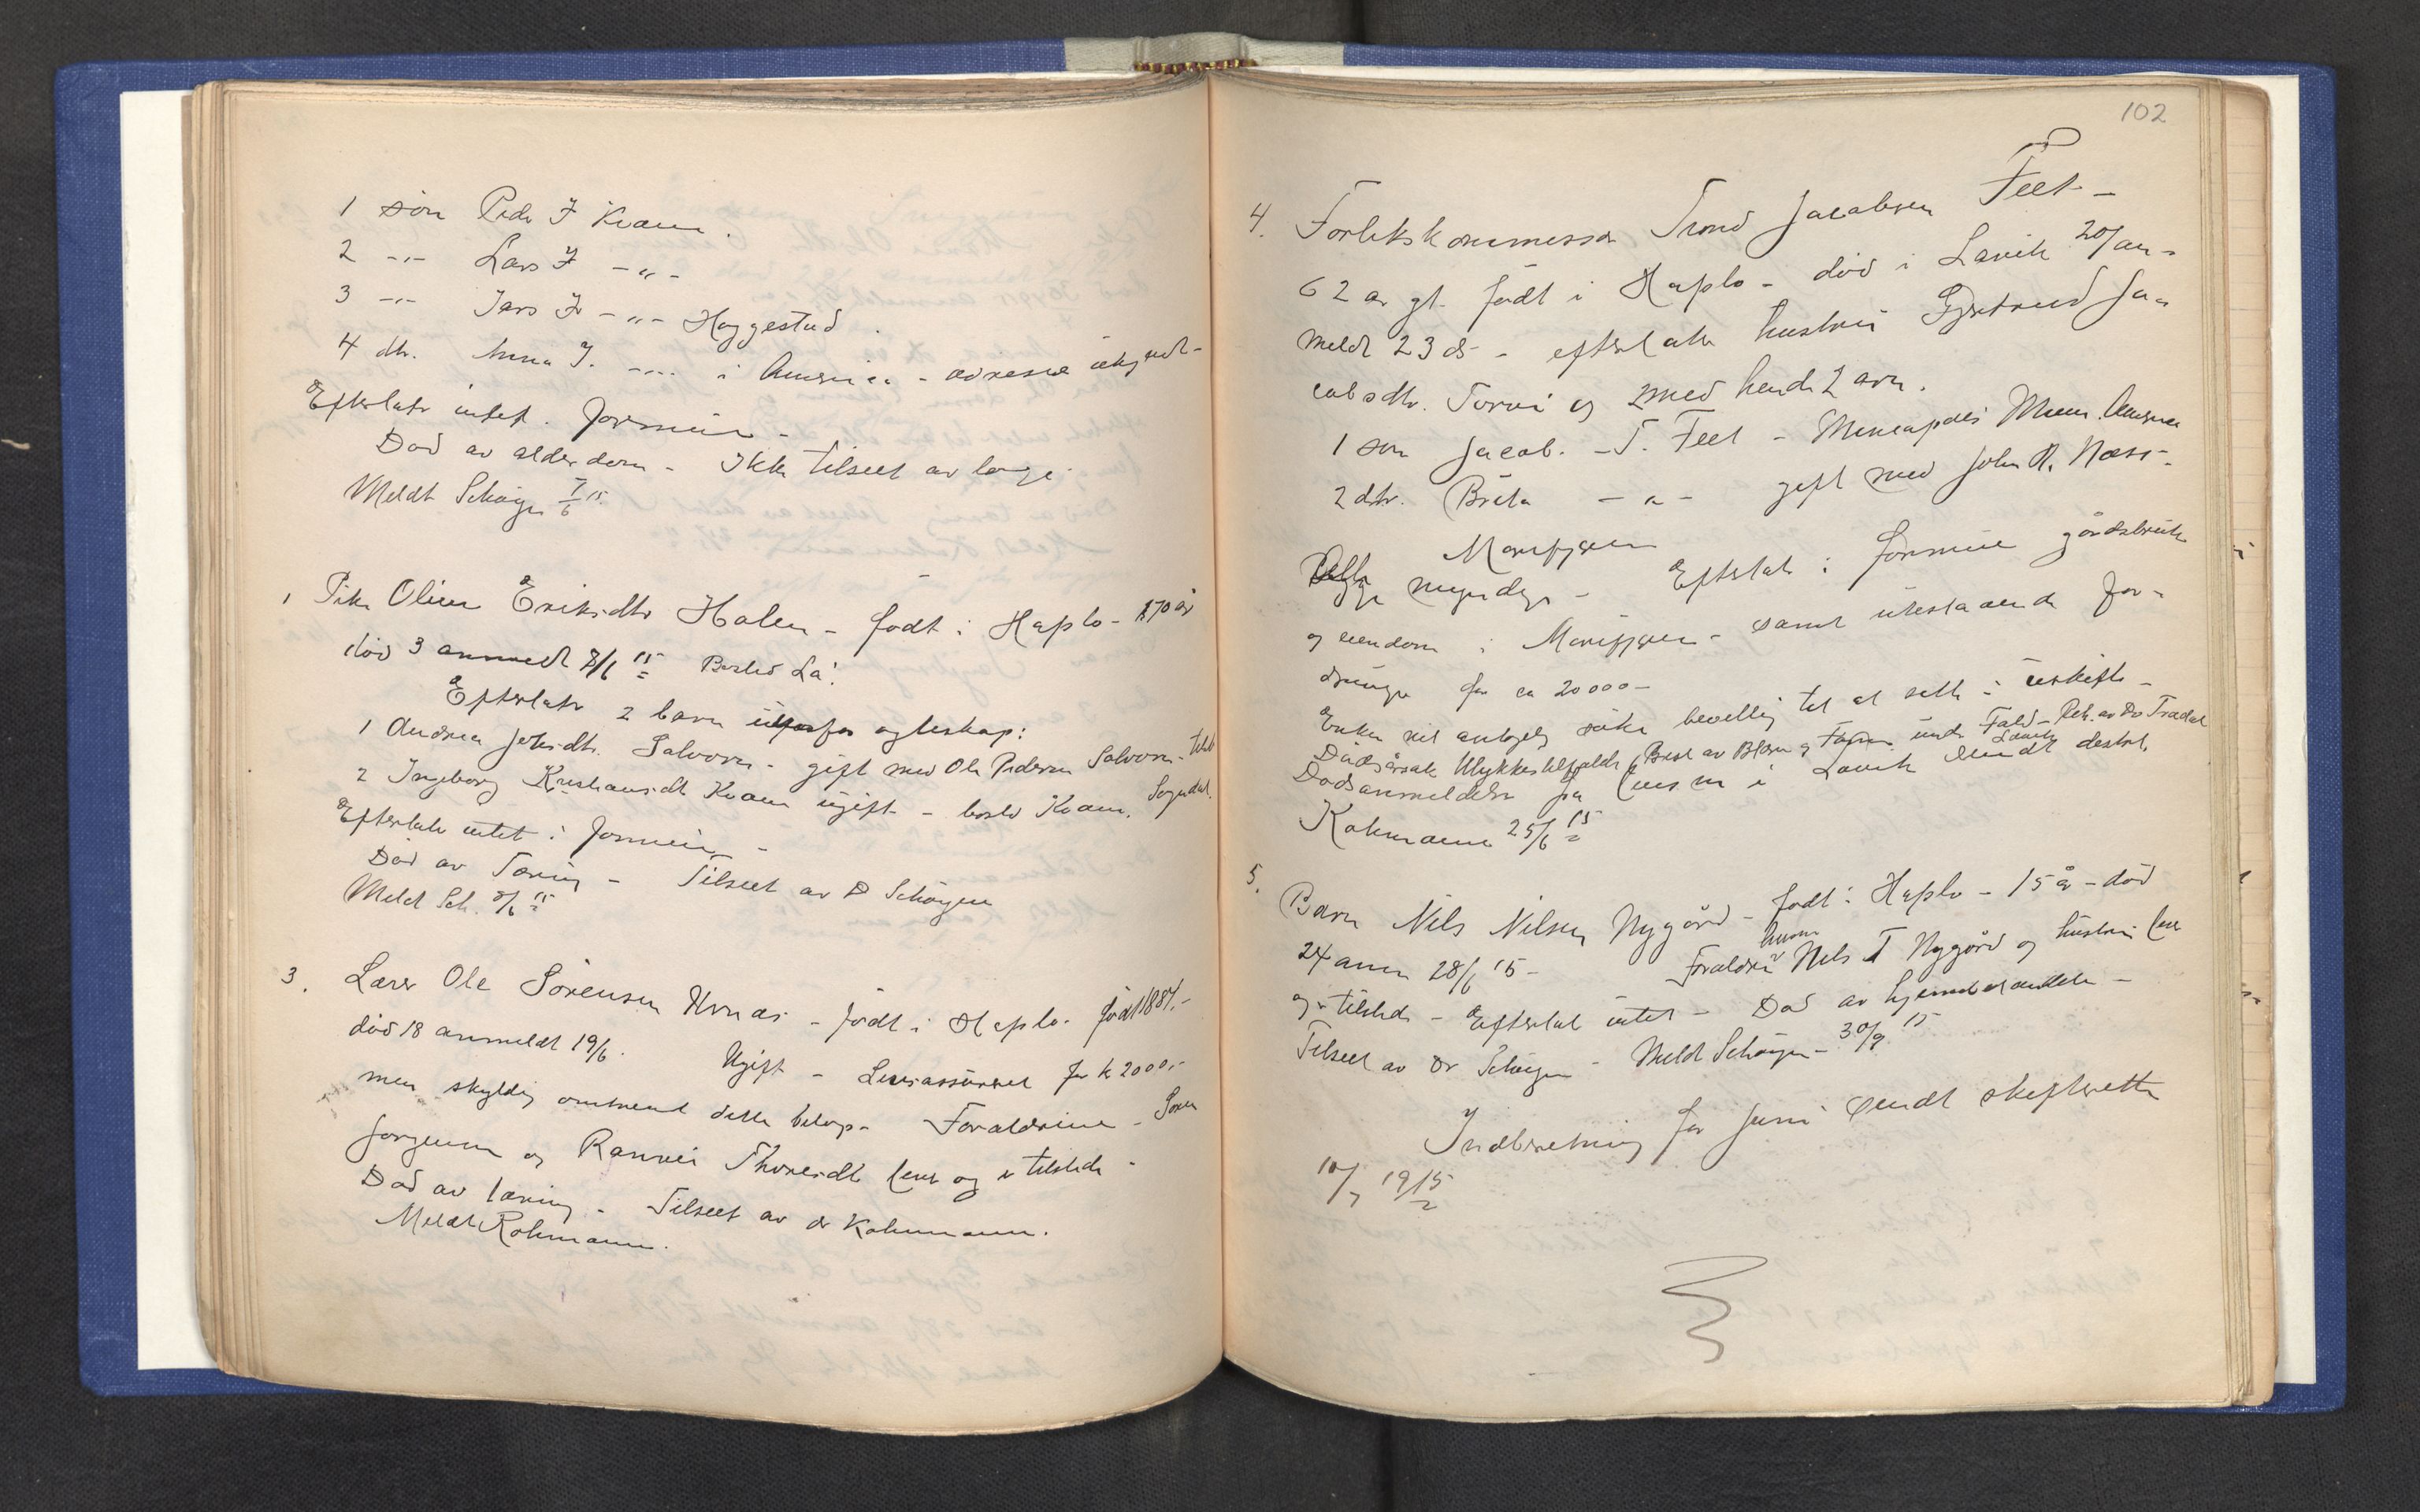 1 søn Peder J Kvam.
2 -"- Lars J -"-
3 -"- Jens J -"- Haggestad.
4 dtr. Anna J. -"- i Amerika - adresse
Efterlater intet i formue -
Død av alderdom - Ikke tilseet av læge.
Meldt Schøyen 7/6 15.
1 Pike Oline Eriksdtr Halen - født i Hafslo - 70 år
død 3 anmeldt 8/6 15 Bosted
Efterlater 2 barn utenfor egteskap:
1 Andrea Johsdtr. Solvorn - gift med Ole Pedersen Solvorn
2 Ingeborg Kristiansdt Kvam ugift - bosted Kvam, Sogndal.
Efterlater intet i formue -
Død av Tæring - Tilseet av D Schøyen
Meldt Sch. 8/6 15
3. Lærer Ole Sørensen - født i Hafslo - født 1884.-
død 18 anmeldt 19/6. Ugift - Livsassurert for kr 2000,-
men skyldig omtrent dette beløp - Forældrene - Søren
Jørgensen og Ranvei Thoresdtr lever og er tilstede -
Død av tæring - Tilseet av dr Kohmann.
Meldt Kohmann.
102
4. Forlikskommissær Trond Jacobsen Feet -
62 år gl. født i Hafslo - død i Lavik 20/ an-
meldt 23 ds - efterlater hustru Gjertrud Ja-
cobsdtr. Torvi og med hende 2 barn.
1 søn Jacob. T. Feet - Mineapolis Minn. Amerika
2 dtr. Brita -"- gift med John R. Næss -
Marifjæren
Begge myndige - Efterlater i formue gårdsbruk
og eiendom i Marifjæren - samt utestaaende for-
dringer for ca 20000 -
Enken vil antagelig søke bevilling til at sitte i uskifte -
Dødsårsak Ulykkestilfælde, Brist av Blære og under Fald - Beh. av Dr
Dødsanmeldelse fra lensm i Lavik sendt
Kohmann 25/6 15
5. Barn Nils Nilsen Nygård - født i Hafslo - 15 år - død
24 anm 28/6 15 - Forældre husm Nils T Nygård og hustru lever
og er tilstede - Efterlat intet - Død av hjernebetændelse -
Tilseet av Dr Schøyen - Meldt Schøyen - 30/9 15
Indberetning for juni sendt skifteretten
10/7 1915